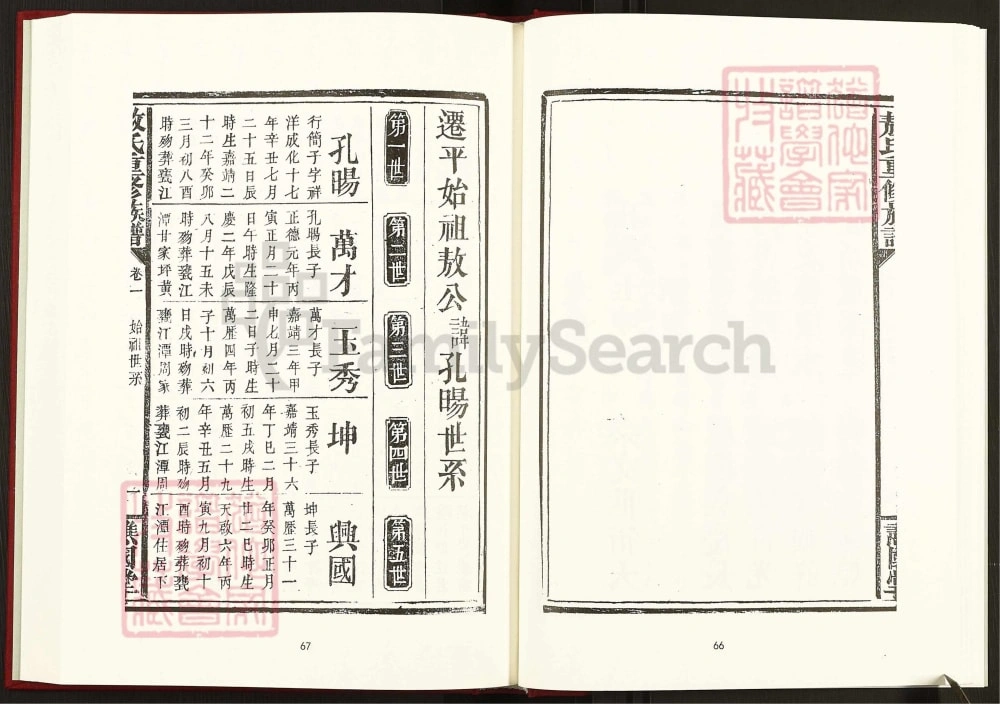 敖氏重修族譜
譙國堂
66
遷平始祖敖公諱孔暘世系
第一世
第二世
第三世
第四世
第五世
孔暘
行簡子字祥
洋成化十七
年辛丑七月
二十五日辰
時生嘉靖二
十二年癸卯
三月初八酉
時歿葬甕江
萬才
孔暘長子
正德元年丙
寅正月二十
日午時生隆
慶二年戊辰
八月十五未
時歿葬甕江
潭甘家坪黄
玉秀
萬才長子
嘉靖三年甲
申七月二十
二日子時生
萬曆四年丙
子十月初六
日戌時歿葬
甕江潭周家
坤
玉秀長子
嘉靖三十六
年丁巳二月
初五戌時生
萬歷二十九
年辛丑五月
初二辰時歿
葬甕江潭周
興國
坤長子
萬歷三十一
年癸卯正月
廿二巳時生
天啟六年丙
寅九月初十
酉時歿葬甕
江潭住居下
敖氏重修族譜
卷一
始祖世系
一
譙國堂
67
FamilySearch